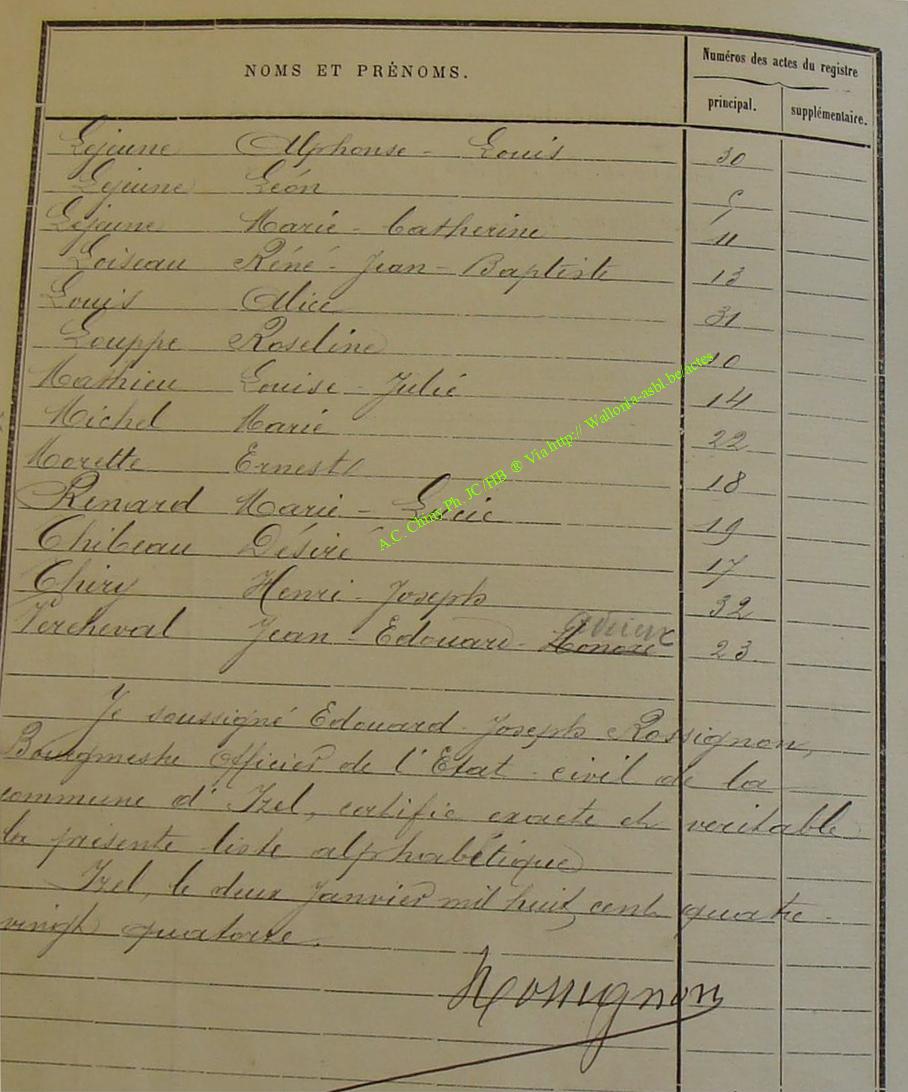 NOMS ET PRÉNOMS.
Numéros des actes du registre
principal.
supplémentaire.
Lejeune Alphonse - Louis 30
Lejeune Léon
Lejeune Marie - Catherine 11
Loiseau Réné - Jean - Baptiste 13
Louis Alice 31
Louppe Roseline 10
Mathieu Louise - Julie 14
Michel Marie 22
Morette Ernest 18
Renard Marie - Lucie 19
Thibeau Désiré 17
Thiry Henri - Joseph 32
Vercheval Jean - Edouard - Honoré 23
Je soussigné Edouard - Joseph Rossignon,
Bourgmestre Officier de l'Etat - civil de la
commune d'Izel, certifie exacte et veritable
la présente liste alphabétique
Izel, le deux Janvier mil huit cent quatre -
vingt quatorze.
Rossignon
A.C. Chiny Ph. JC/HB ® Via http:// Wallonia-asbl.be/actes